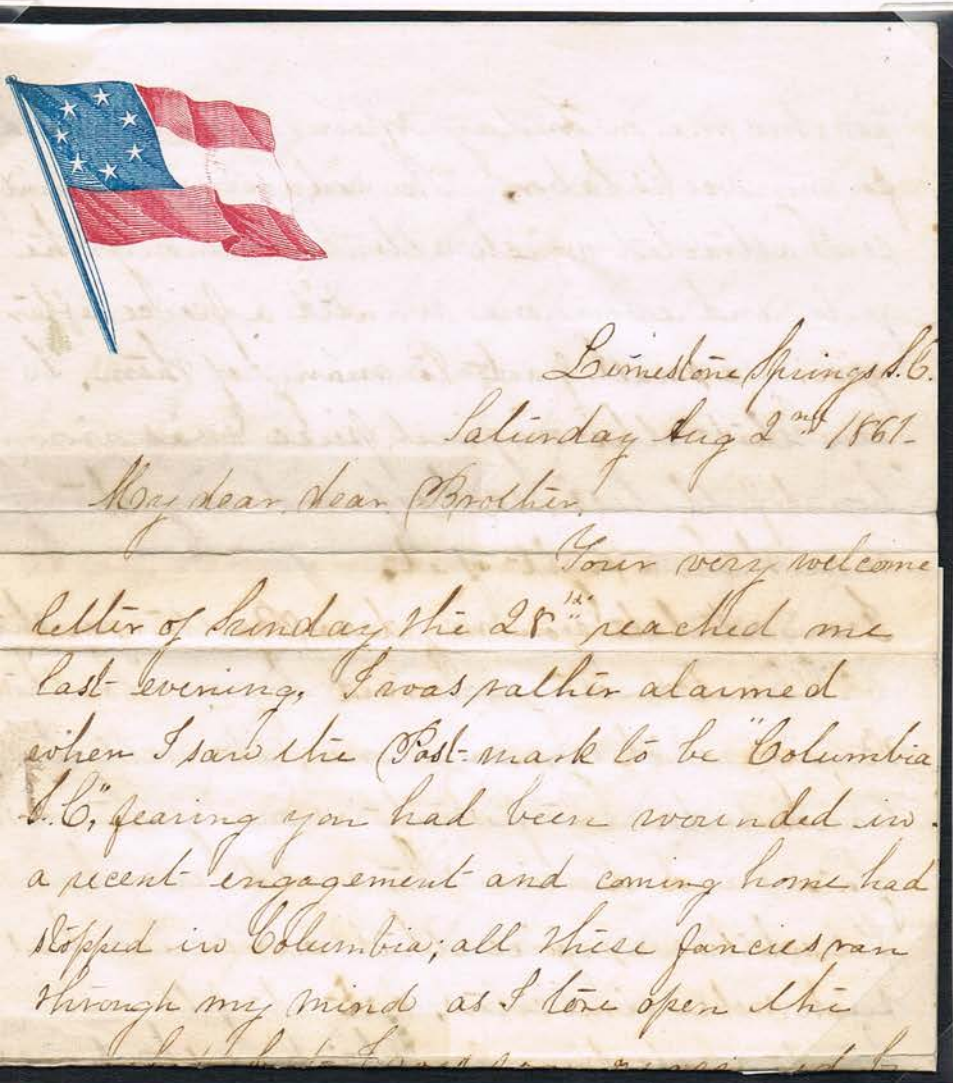 Limestone Springs S.C.
Saturday Aug 2nd 1861-
My dear, dear Brother,
Your very welcome
letter of Sunday the 28th reached me
last evening, I was rather alarmed
when I saw the Post-mark to be "Columbia
S.C," fearing you had been wounded in
a recent engagement and coming home had
stopped in Columbia; all these fancies ran
through my mind as I tore open the